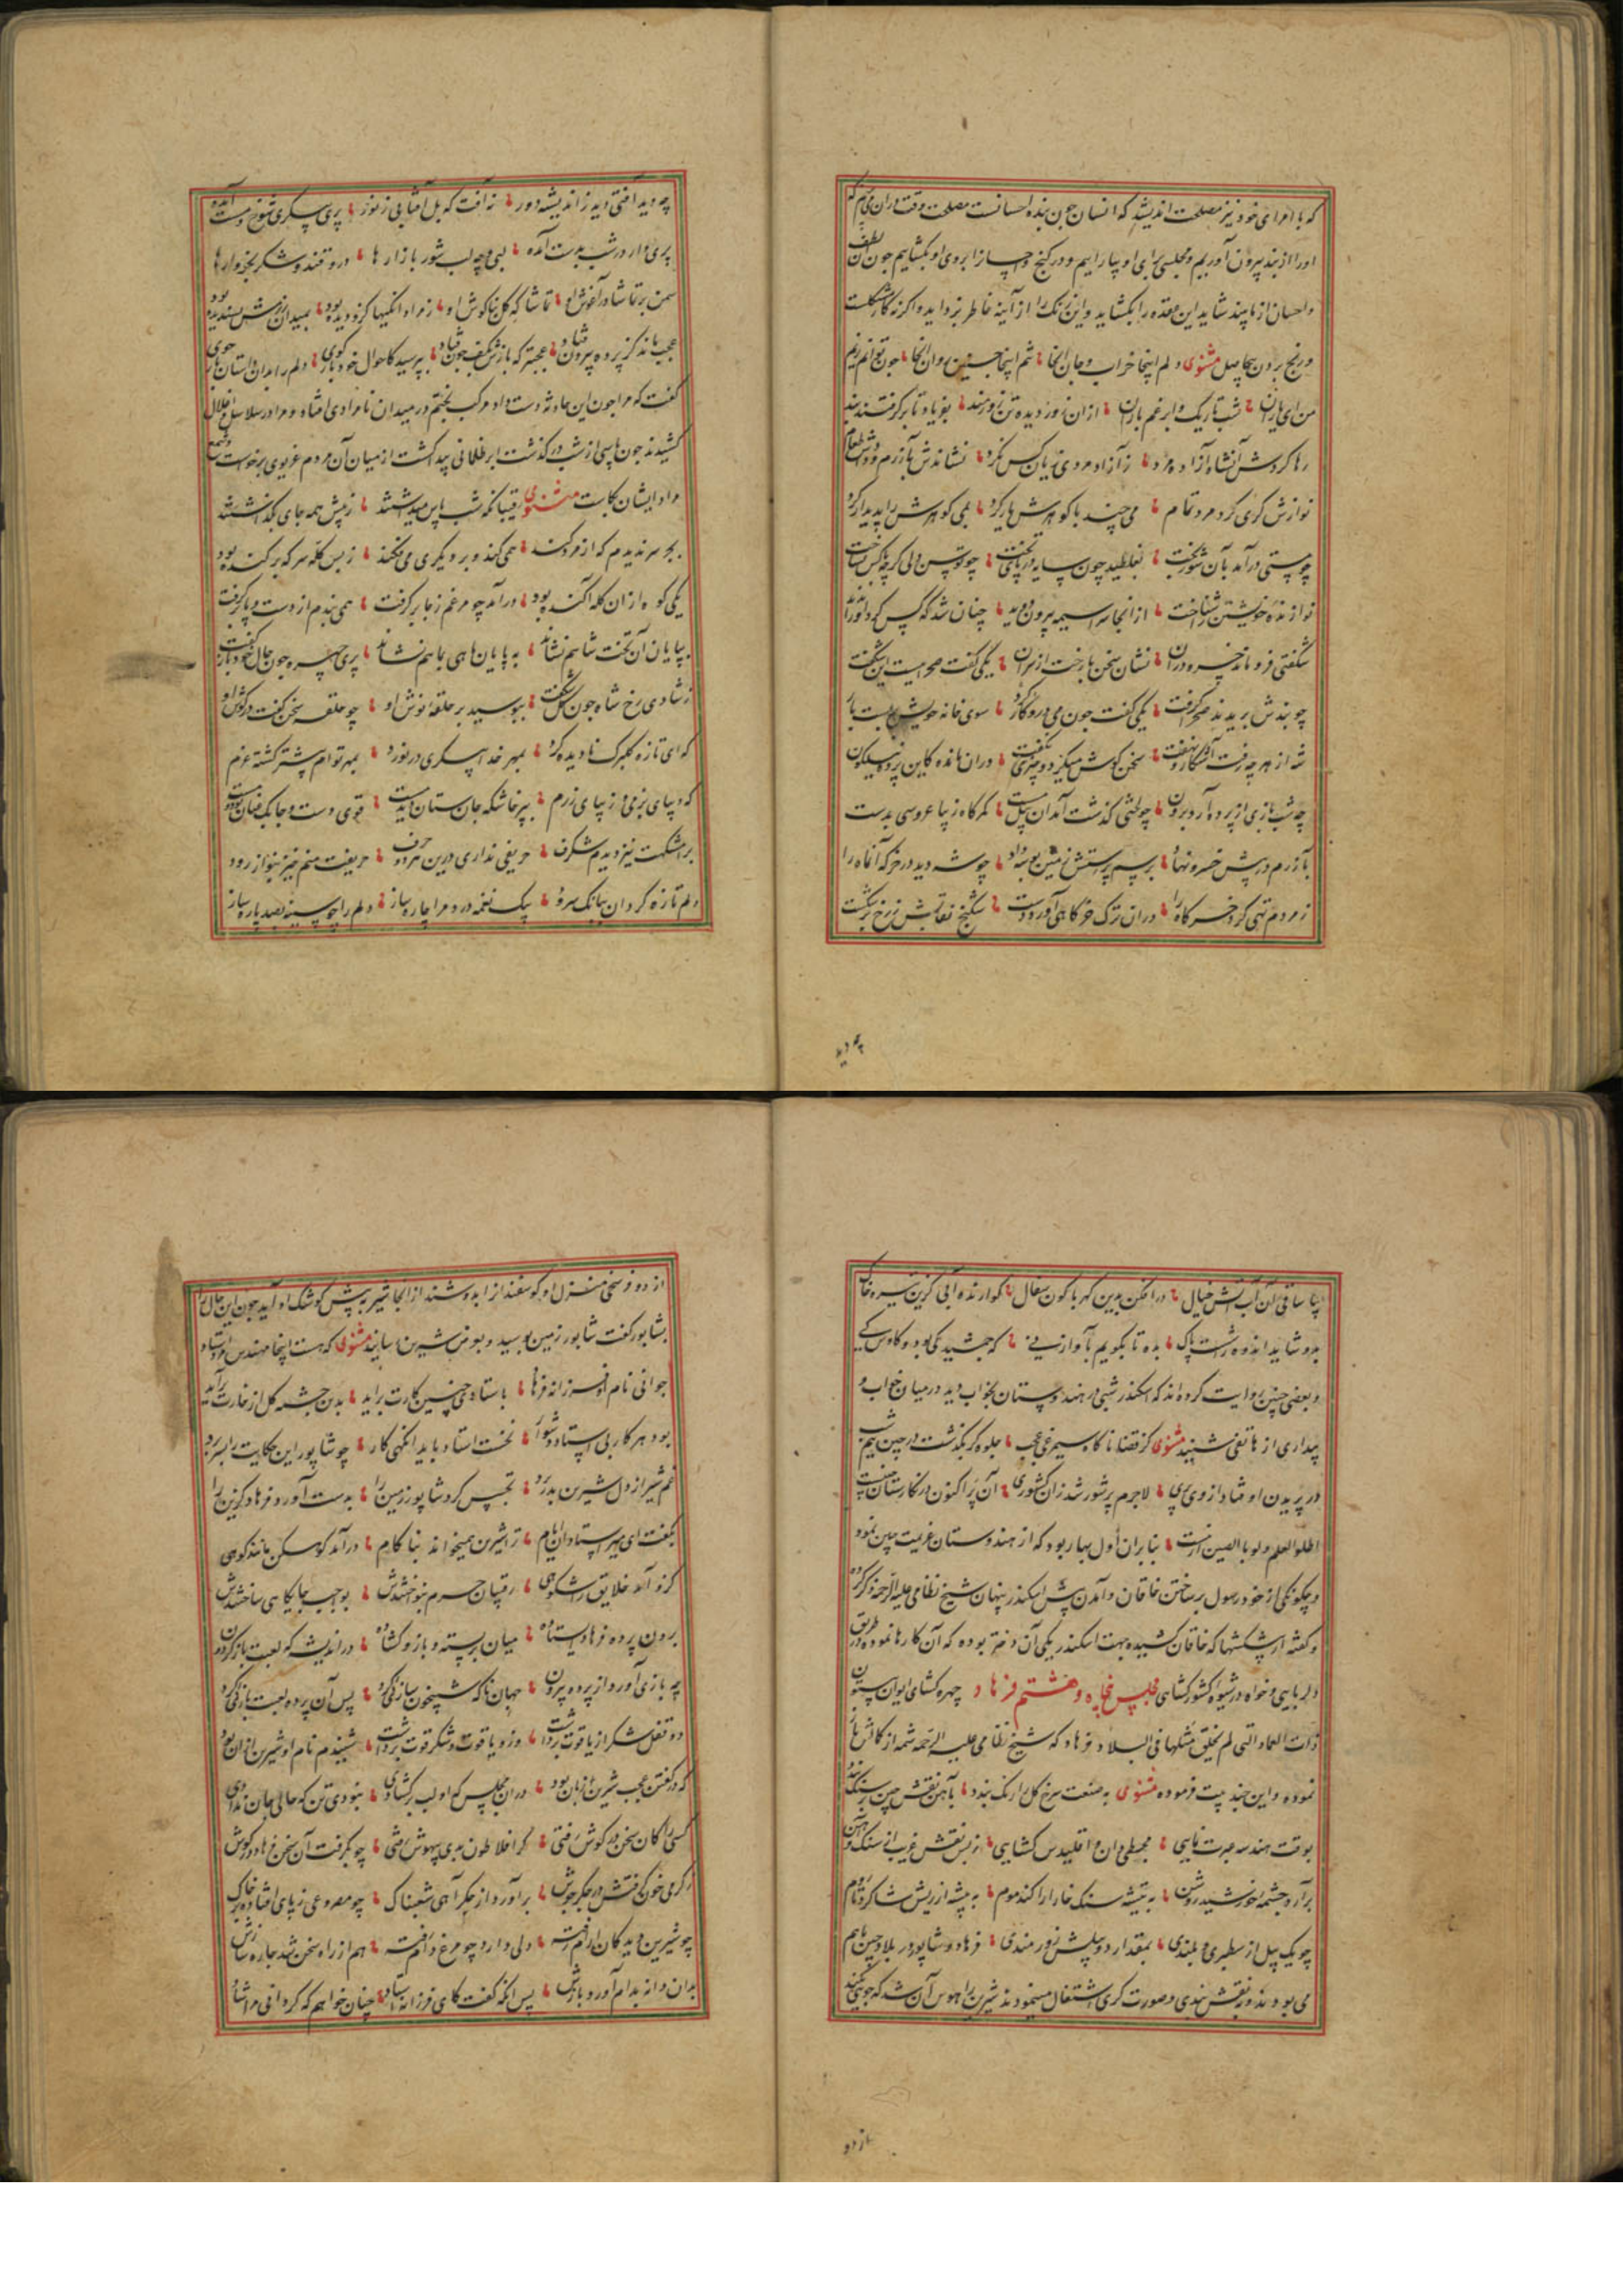 که با امرای خود نیز مصلحت اندیشد که انسان چون بنده احسانست مصلحت وقت دران می بینم که
اورا از بند بیرون آوریم و مجلسی برای او بیاراییم و در گنج و احسان از ابروی او بکشاییم چون آن لطف
و احسان از ما بیند شاید این عقده را بکشاید و این زنک را از آینه خاطر بزداید و اکرنه کار مشکلست
و رنج بردن بیحاصل مثنوی دلم اینجا خراب و جان آنجا تنم اینجا چنین روان آنجا چون
من ای یاران شب تاریک و ابر غم باران ازان زور دیده تن زورمند بفریاد تا برکرفتند بند
رها کردش آنشاه آزاد مرد ز آزاد مردی زیان کس نکرد نشاندش بآزرم و دادش طعام
نوازش کری کرد مرد تمام می چند با کوهرش یار کرد می کوهرش را پدیدار کرد
چو مستی درآمد بآن شوربخت بغلطید چون سایه در پای تخت
نوازنده خویشتن را شناخت از انجا سراسیمه بیرون دوید چنان شد که کس کرد او را ندید
شکفتی فرو ماند خسرو دران نشان سخن باز جست از سران یکی گفت صحراییست این شکفت
چو بندش بریدند صحرا کرفت یکی کفت چون می درو کار کرد سوی خانه خویش بست بار
شه از هر چه رفت آشکار و نهفت سخن کوش میکرد و چیزی نکفت دران مانده کاین پرده نیلکون
چه شب بازی از پرده آرد برون چو لختی گذشت آمد آن پیل مست کمرکاه زیبا عروسی بدست
بآزرم در پیش خسرو نهاد برسم پرستش زمین بوسه داد چو شه دید در خرکه آنماه را
ز مردم تهی کرد خرکاه را دران ترک خرگاهی آورد دست شکنج نقابش ز رخ برشکست
چو دید
چو دید آفتی دید ز اندیشه دور نه آفت که بل آفتابی ز نور پری پیکری شوخ و مست آمده
پری وار در شب بدست آمده لبی و چه لب شور بازارها درو قند و شکر بخروارها
سمن بر تماشا در آغوش او تماشا که کل بناکوش او ز مردانکیها کزو دیده بود بمیدان رزمش پسندیده بود
عجب ماند کز پرده بیرون فتاد عجبتر که بازش بکف چون فتاد بپرسید کاحوال خود باز کوی دلم را بدان داستان باز جوی
گفت که مرا چون این حادثه دست داد و مرکب بختم در میدان نامرادی افتاد و مرا در سلاسل و اغلال
کشیدند چون پاسی از شب در گذشت ابر ظلمانی پیدا گشت از میان آن مردم غریوی برخواست و شمع
مراد ایشان بکاست مثنوی رقیبان که شب پاس میداشتند ز بیش همه جای بکذاشتند
بجز سر ندیدم که از مردکند همی کند و بر دیکری می فکند ز بس کله سر که برکنده بود
یکی کوه ازان کله آکنده بود درآمد چو مرغم ز جا برکرفت همی بندم از دست و پا برکرفت
بپایان آن تخت شاهم نشاند به پایان ماهی بماهم نشاند پری چهره چون حال خود باز کفت
ز شادی رخ شاه چون کل شکفت ببوسید بر حلقه نوش او چو حلقه سخن کفت در گوش او
که ای تازه کلبرک نادیده کرد بمهر خدا پیکری در نورد بمهر توام بیشتر کشته عزم
که دیبای بزمی و زیبای رزم بپرخاشکه جان ستان آیدت قوی دست و چابک عنان بینمت
برامشکهت نیز دیدم شکرف حریفی نداری درین هر دو حرف حریفت منم خیز بنواز رود
دلم تازه کردان ببانک سرود بیک نغمه درد مرا چاره ساز دلم را چو سینه بصد پاره ساز
بیا ساقی آن آب آتش خیال درافکن بدین کهرباکون سفال کوارنده آبی کزین تیره خاک
برو شاید اندوه را شست پاک بده تا بگویم بآواز نی که جمشید کی بود و کاوس کی
و بعضی چنین روایت کرده اند که اسکندر شبی در هندوستان بخواب دید در میان خواب و
بیداری از هاتفی شنید مثنوی کز قضا ناکاه سیمرغ عجب جلوه کر بکذشت در چین نیم شب
در پریدن اوفتاد از وی پری لاجرم پر شور شد زان کشوری آن پر اکنون در نکارستان چینست
اطلبوا العلم ولو بالصین ازینست بنابران اول بهار بود که از هندوستان عزیمت چین نمود
و چکونکی از خود رسول برساختن خاقان و آمدن پیش اسکندر پنهان شیخ نظامی علیه الرحمه ذکر کرده
و کفته از پیشکشها که خاقان کشیده بجهت اسکندر یکی آن دختر بوده که آن کارها نموده و در طریق
دلربایی و خواه در شیوه کشورکشای مجلس پنجاه و هشتم فرهاد چهره کشای ایوان بیستون
ذات العماد التی لم یخلق مثلها فی البلاد فرهاد که شیخ نظامی علیه الرحمه شمه از کارش باز
نموده و این چند بیت فرموده مثنوی به صنعت سرخ کل را رنک بندد بآهن نقش چین بر سنک بندد
بوقت هندسه عبرت نمایی مجسطی دان و اقلیدس کشایی ز بس نقش غریب از سنک و آهن
برآرد چشمه خورشید روشن به تیشه سنک خارا را کند موم به پیشه از ریش شاکرد تا روم
چو یک پیل از سطبری و بلندی بمقدار دو پیلش زورمندی فرهاد و شاپور در بلاد چین با هم
می بودند و در نقش بندی و صورت کری اشتغال مینمودند شیرین را هوس آن شد که جویی کنند
از دو
از دو فرسخی منزل او کوسفند از ابدوشند از آنجا شیر به پیش کوشک او آید چون این حال را
بشاپور گفت شاپور زمین بوسید و بعرض شیرین رسانید مثنوی که هست اینجا مهندس مرد استاد
جوانی نام او فرزانه فرهاد باستادی چنین کارت برآید بدین چشمه کل از خارت برآید
بود هر کار بی استاد دشوار نخست استاد باید آنکهی کار چو شاپور این حکایت را بسر برد
غم شیر از دل شیرین بدر برد تجسس کرد شاپور زمین را بدست آورد فرهاد گزین را
بگفت ای میر استادان ایام ترا شیرین همیخواند بنا کام درآمد کوهکن مانند کوهی
کزو آمد خلایق را شکوهی رقیبان حرم بنواختندش بواجب جایکاهی ساختندش
برون پرده فرهاد ایستاده میان بر بسته و بازو کشاده در اندیشه که لعبت باز کردون
چه بازی آورد از پرده بیرون جهان ناکه شبیخون سازی کرد پس آن پرده لعبت بازی کرد
دو قفل شکر از یاقوت برداشت وزو یاقوت و شکر قوت برداشت شنیدم نام او شیرین ازان بود
که در کفتن عجب شیرین زبان بود دران مجلس که او لب برکشادی نبودی تن که حالی جان ندادی
کسی را کان سخن در کوش رفتی کر افلاطون بدی بیهوش رفتی چو بکرفت آن سخن فرهاد در کوش
ز کرمی خون کرفتش در جکر جوش برآورد از جکر آهی شغبناک چو مصروعی ز پای افتاد بر خاک
چو شیرین دید کان آرام رفته دلی دارد چو مرغ دام رفته هم از راه سخن شد چاره سازش
بدان دانه بدام آورد بازش پس آنکه کفت کای فرزانه استاد چنان خواهم که کردانی مرا شاد